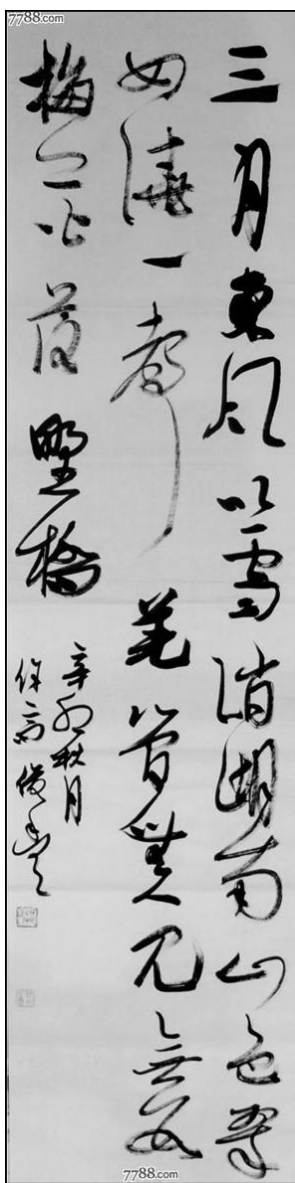 7788.com
三月東風吹雪消湖南山色翠
如澆一聲羌管無人見無數
梅花落野橋
辛卯秋月
7788.com